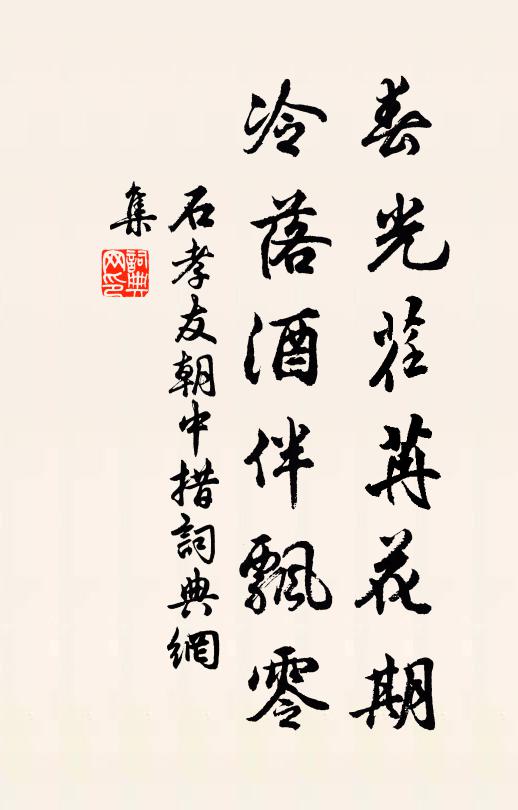 春光荏苒花期
冷落酒伴飄零
石孝友朝中措詞典網
集
詞典
网印